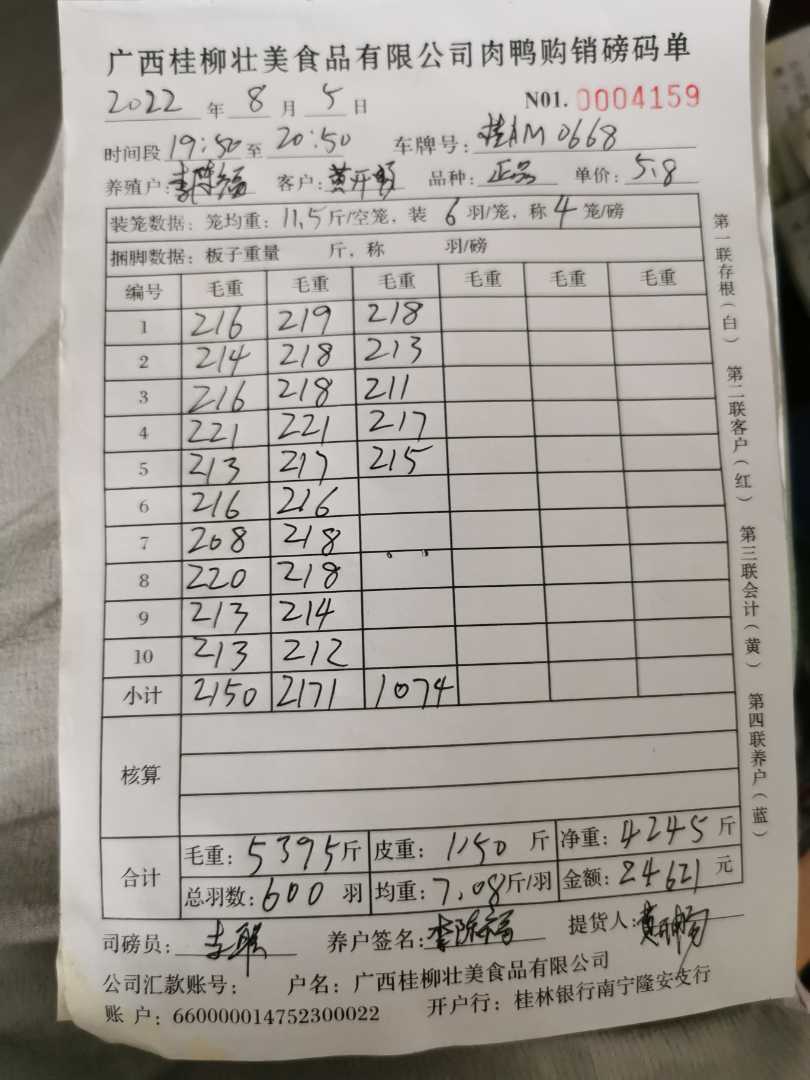 广西桂柳壮美食品有限公司肉鸭购销磅码单
2022 年 8 月 5 日 N01. 0004159
时间段 19:50 至 20:50 车牌号: 桂AM0668
养殖户: 客户: 黄开 品种: 正品 单价: 5.8
装笼数据: 笼均重: 11.5 斤/空笼, 装 6 羽/笼, 称 4 笼/磅
捆脚数据: 板子重量 斤, 称 羽/磅
编号 毛重 毛重 毛重 毛重 毛重 毛重
1 216 219 218
2 214 218 213
3 216 218 211
4 221 221 217
5 213 217 215
6 216 216
7 208 218
8 220 218
9 213 214
10 213 212
小计 2150 2171 1074
核算
合计 毛重: 5395 斤 皮重: 1150 斤 净重: 4245 斤
总羽数: 600 羽 均重: 7.08 斤/羽 金额: 24621 元
司磅员: 养户签名: 提货人:
公司汇款账号: 户名: 广西桂柳壮美食品有限公司
账 户: 660000014752300022 开户行: 桂林银行南宁隆安支行
第一联存根(白) 第二联客户(红) 第三联会计(黄) 第四联养户(蓝)